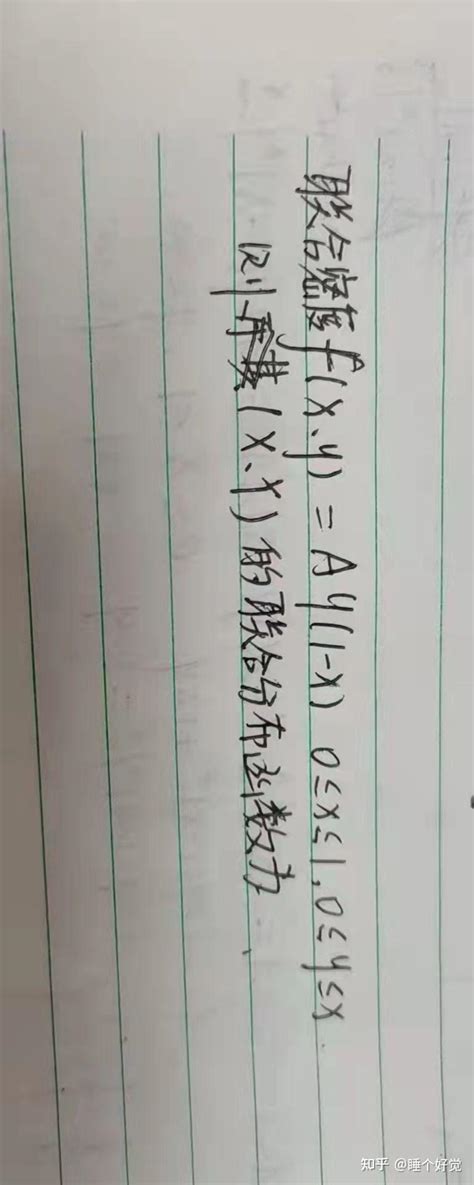 联合密度f(x、y)=Ay(1-x) 0≤x≤1,0≤y≤x
则(X、Y)的联合分布函数为
知乎 @睡个好觉